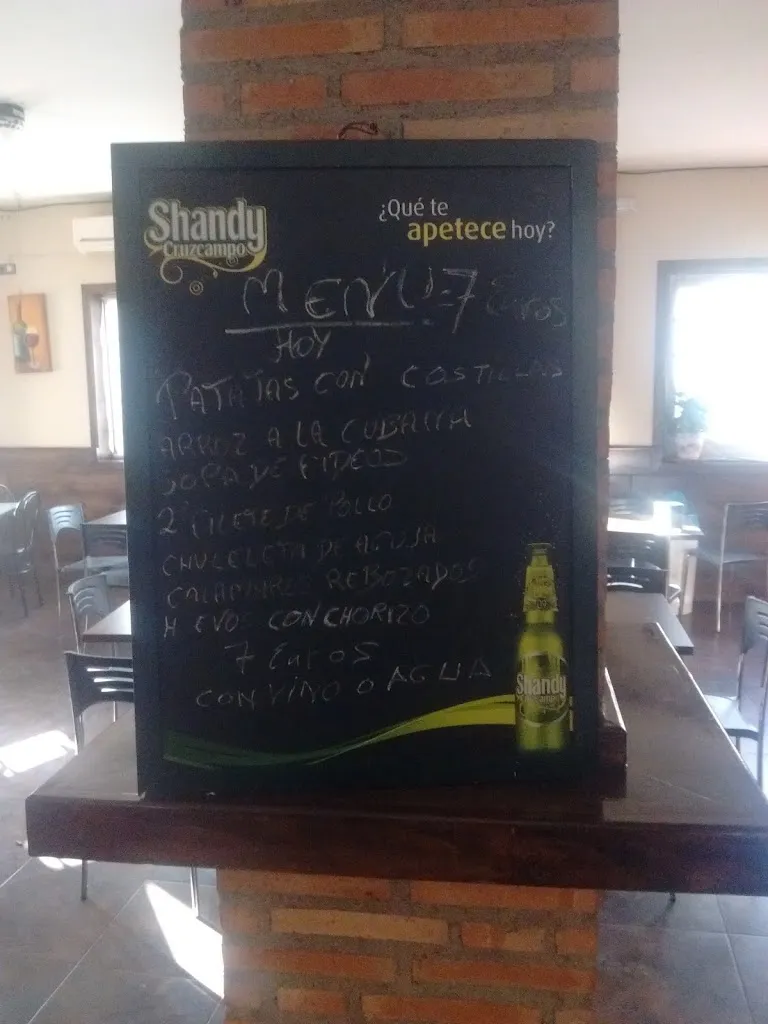 Shandy
Cruzcampo
¿Qué te
apetece hoy?
MENU=7 Euros
HOY
PATATAS CON COSTILLAS
ARROZ A LA CUBANA
SOPA DE FIDEOS
2º FILETE DE POLLO
CHULELETA DE AGUJA
CALAMARES REBOZADOS
HUEVOS CON CHORIZO
7 Euros
CON VINO O AGUA
Shandy